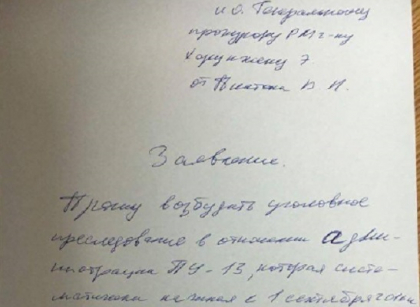 и о. Генеральному
прокурору РМ г-ну
Харунжему Э.
от Пынтока В. И.
Заявление.
Прошу возбудить уголовное
преследование в отношении админ-
нистрации ПУ-13, которая систе-
матически начиная с 1 сентября